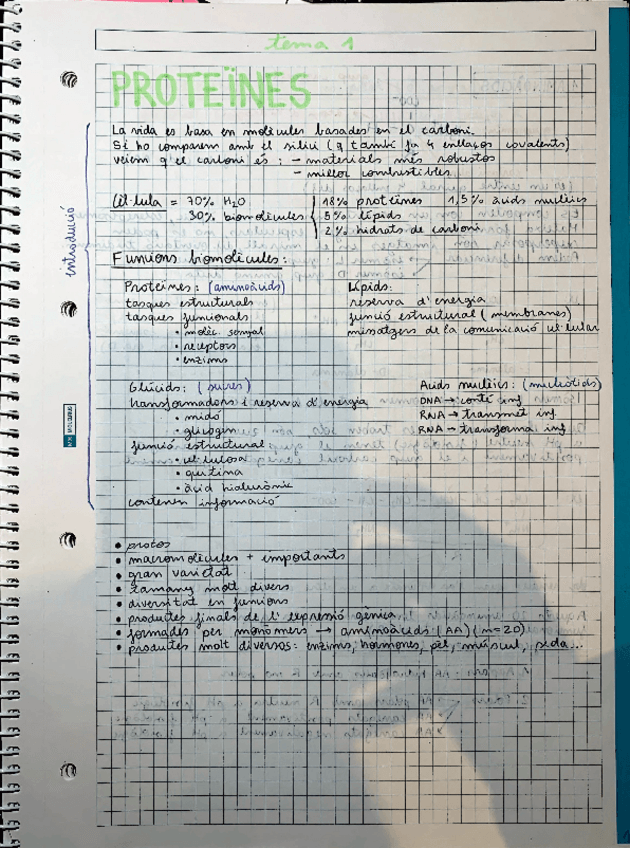 tema 1
PROTEÏNES
La vida es basa en molècules basades en el carboni.
Si ho comparem amb el silici (q també fa 4 enllaços covalents)
veiem q'el carboni és : - materials més robustos
- millor combustibles
introducció
Cèl·lula = 70% H2O
30% biomolècules
18% proteïnes
5% lípids
2% hidrats de carboni
1,5% àcids nucleics
Funcions biomolècules:
Proteïnes: (aminoàcids)
tasques estructurals
tasques funcionals
• molèc. senyal
• receptors
• enzims
Lípids:
reserva d'energia
funció estructural (membranes)
missatgers de la comunicació cel·lular
Glúcids: (sucres)
transformadors i reserva d'energia
• midó
• glicogen
funció estructural
• cel·lulosa
• quitina
• àcid hialurònic
contenen informació
Àcids nucleics: (nucleòtids)
DNA → conté inf
RNA → transmet inf.
RNA → transforma inf
• protos
• macromolècules + importants
• gran varietat
• tamany molt divers
• diversitat en funcions
• productes finals de l'expressió gènica
• formades per monòmers → aminoàcids (AA) (n=20)
• productes molt diversos: enzims, hormones, pèl, múscul, seda...